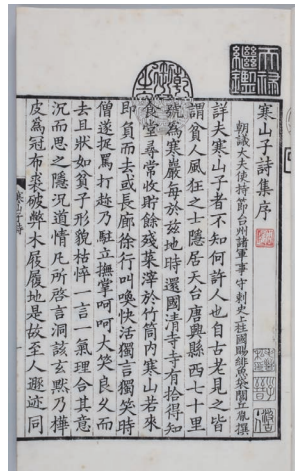 寒山子詩集序
朝議大夫使持節台州諸軍事守刺史上柱國賜緋魚袋閭丘胤撰
詳夫寒山子者不知何許人也自古老見之皆
謂貧人風狂之士隱居天台唐興縣西七十里
號為寒巖每於茲地時還國清寺寺有拾得知
食堂尋常收貯餘殘菜滓於竹筒內寒山若來
即負而去或長廊徐行叫喚快活獨言獨笑時
僧遂捉罵打趁乃駐立撫掌呵呵大笑良久而
去且狀如貧子形貌枯悴一言一氣理合其意
沉而思之隱況道情凡所啓言洞該玄默乃樺
皮為冠布裘破弊木屐履地是故至人遯迹同
天祿繼鑑
乾隆